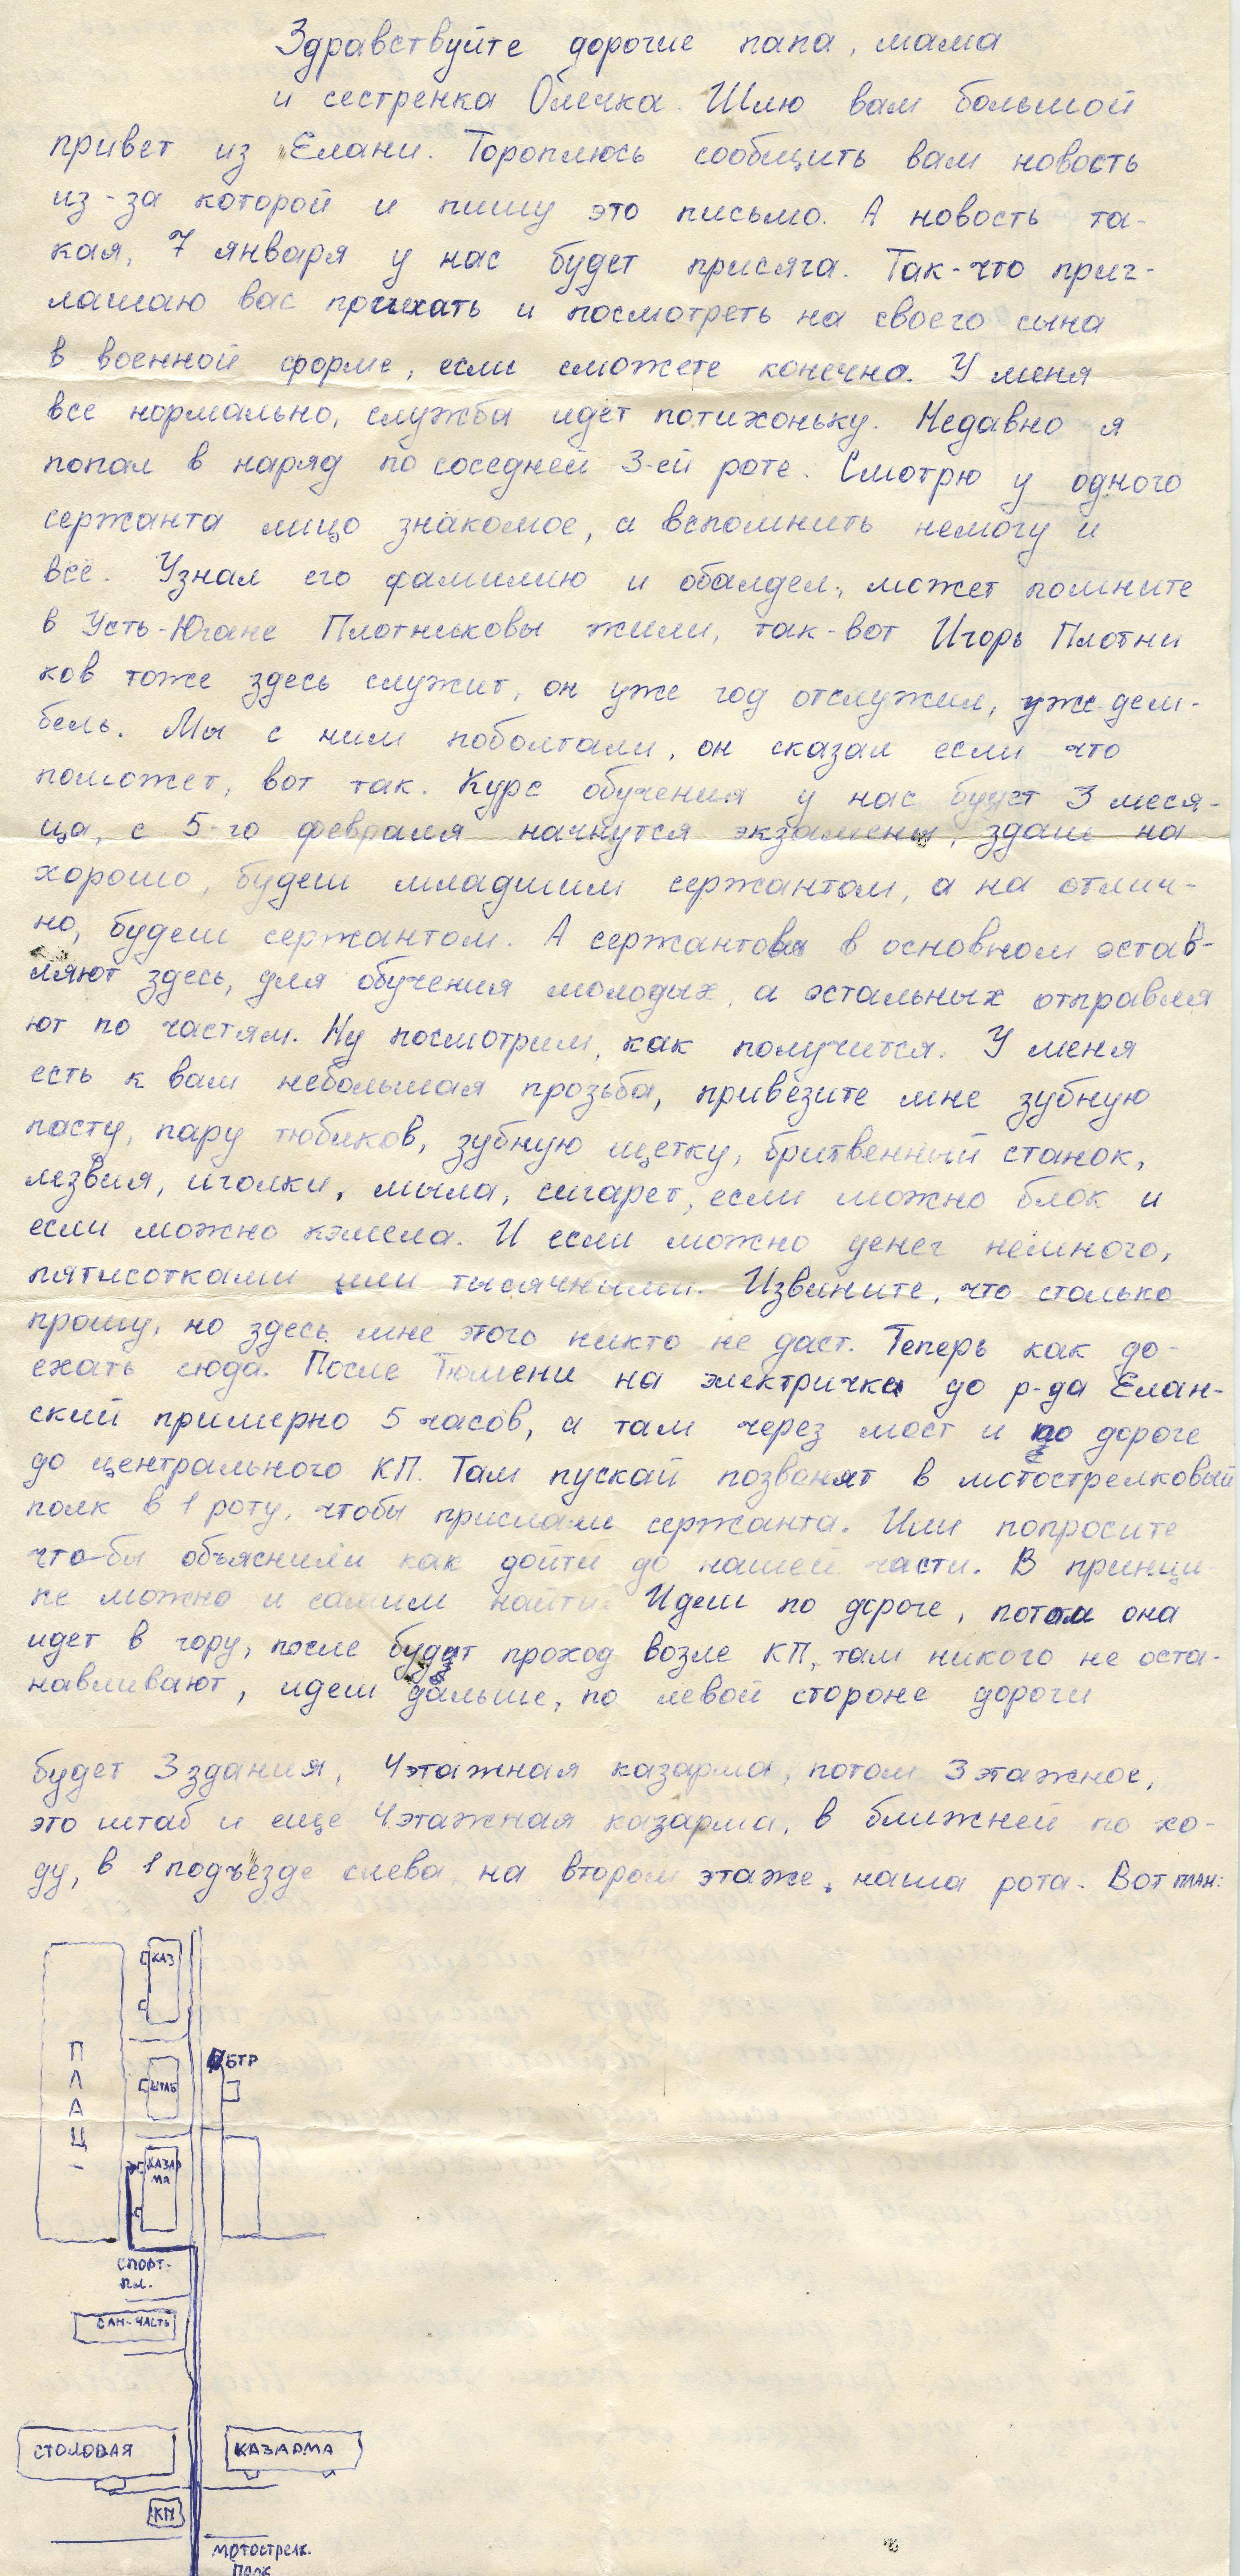 Здравствуйте дорогие папа, мама
и сестренка Олечка. Шлю вам большой
привет из Елани. Тороплюсь сообщить вам новость
из-за которой и пишу это письмо. А новость та-
кая, 7 января у нас будет присяга. Так-что приг-
лашаю вас приехать и посмотреть на своего сына
в военной форме, если сможете конечно. У меня
все нормально, служба идет потихоньку. Недавно я
попал в наряд по соседней 3-ей роте. Смотрю у одного
сержанта лицо знакомое, а вспомнить немогу и
всё. Узнал его фамилию и обалдел, может помните
в Усть-Югане Плотниковы жили, так-вот Игорь Плотни
ков тоже здесь служит, он уже год отслужил, уже дем-
бель. Мы с ним поболтали, он сказал если что
поможет, вот так. Курс обучения у нас будет 3 меся-
ца, с 5-го февраля начнутся экзамены, здаш на
хорошо, будеш младшим сержантом, а на отлич-
но, будеш сержантом. А сержантов в основном остав-
ляют здесь, для обучения молодых, а остальных отправля
ют по частям. Ну посмотрим, как получится. У меня
есть к вам небольшая прозьба, привезите мне зубную
пасту, пару тюбиков, зубную щетку, бритвенный станок,
лезвия, иголки, мыла, сигарет, если можно блок и
если можно кэмела. И если можно денег немного,
пятисотками или тысячными. Извините, что столько
прошу, но здесь мне этого никто не даст. Теперь как до-
ехать сюда. После Тюмени на электричке до р-да Елан-
ский примерно 5 часов, а там через мост и по дороге
до центрального КП. Там пускай позвонят в мотострелковый
полк в 1 роту, чтобы прислали сержанта. Или попросите
что-бы объяснили как дойти до нашей части. В принци
пе можно и самим найти. Идеш по дороге, потом она
идет в гору, после будет проход возле КП, там никого не оста-
навливают, идеш дальше, по левой стороне дороги
будет 3 здания, 4этажная казарма, потом 3этажное,
это штаб и еще 4этажная казарма, в ближней по хо-
ду, в 1 подъезде слева на втором этаже, наша рота. Вот план:
КАЗ
ПЛАЦ
БТР
ШТАБ
КАЗАР
МА
СПОРТ-
ПЛ.
САН-ЧАСТЬ
СТОЛОВАЯ
КАЗАРМА
КП
МОТОСТРЕЛК.
ПОЛК